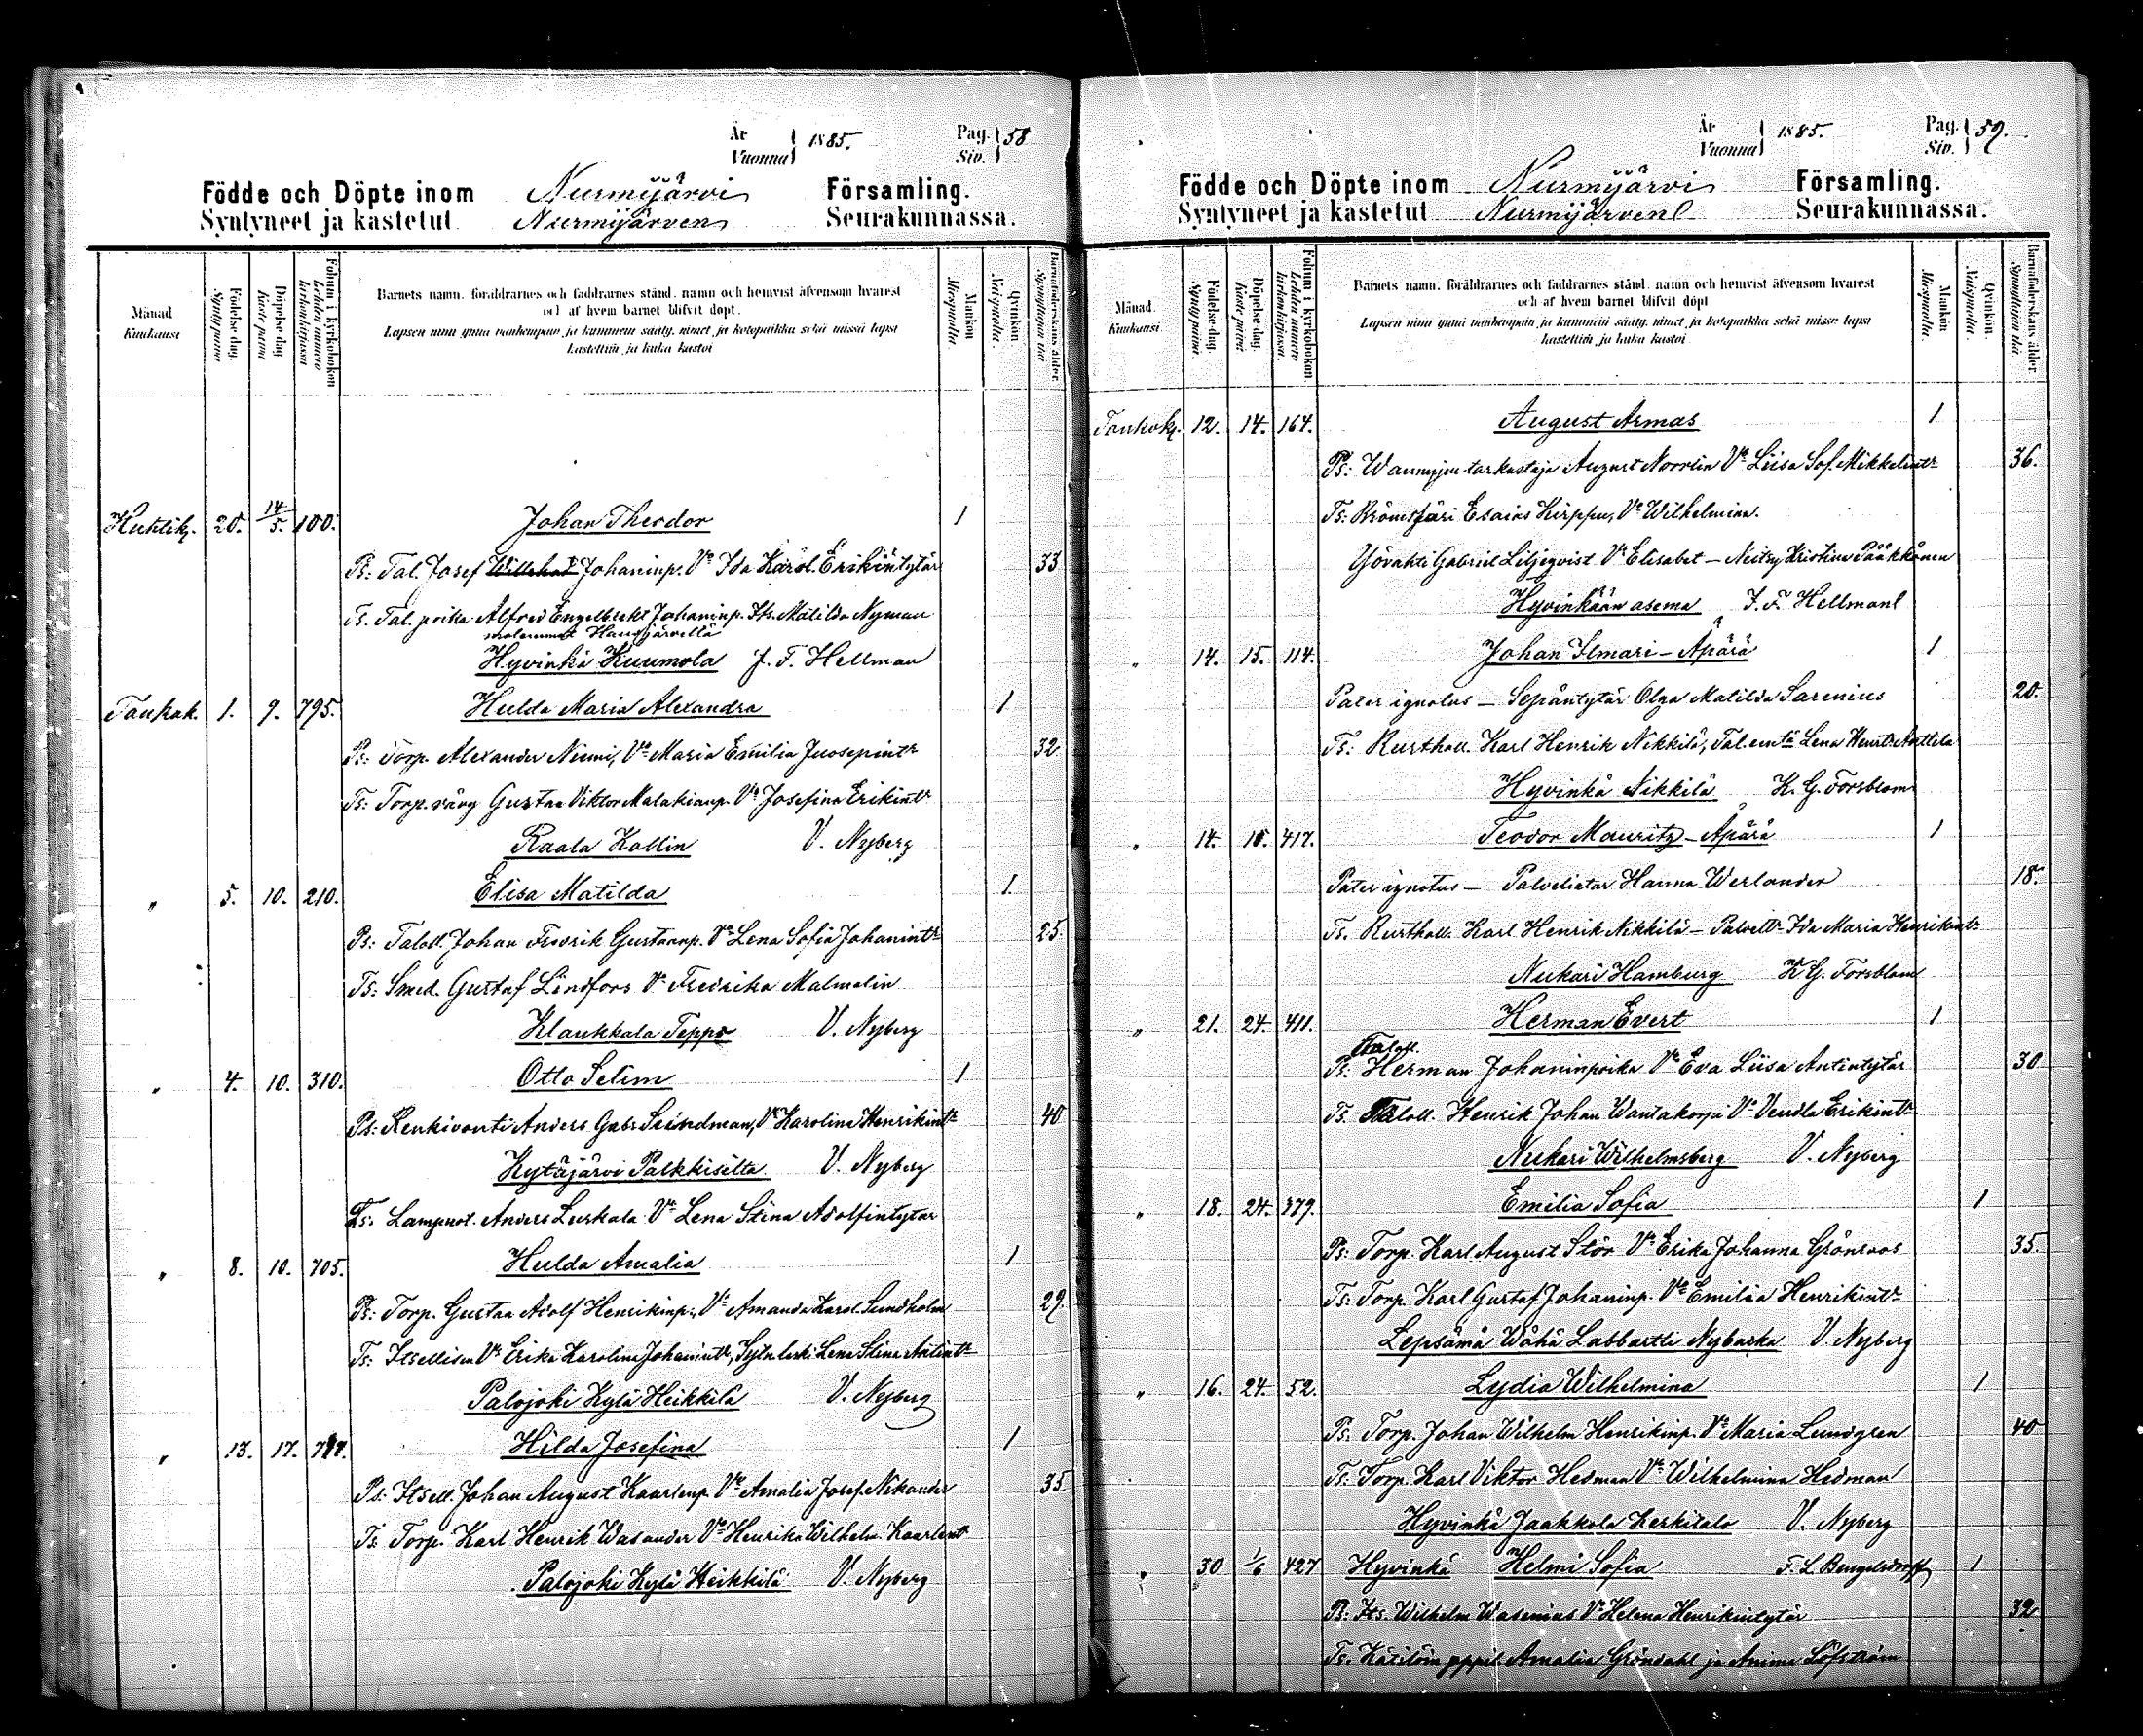 År
Vuonna 1885. Pag. Siv. 58
Födde och Döpte inom Nurmijärvi Församling.
Syntyneet ja kastetut Nurmijärven Seurakunnassa.
Månad Kuukausi
Födelse dag. Synty päivä
Döpelse dag Kaste päivä
Folium i kyrkoboken Lehden numero kirkonkirjassa
Barnets namn, föräldrarnes och faddrarnes stånd, namn och hemvist äfvensom hvarest
och af hvem barnet blifvit döpt.
Lapsen nimi ynnä vanhempain ja kummein sääty, nimet, ja kotopaikka sekä missä lapsi
kastettiin ja kuka kastoi
Mankön Miespuolia
Qvinkön Naispuolia
Barnaföderskans ålder. Synnyttäjän ikä
Huhtik. 20. 14/5. 100. Johan Theodor 1
Ps: Tal. Josef Johaninp. Vo Ida Karol. Erikintytär 33
Ts. Tal. poika Alfred Engelbrekt Johaninp. Its. Matilda Nyman
molemmat Hausjärvellä
Hyvinkä Kuumola J. F. Hellman
Toukok. 1. 9. 795. Hulda Maria Alexandra 1
Ps: Torp. Alexander Niemi, Vo Maria Emilia Juosepintr 32
Ts: Torp. väng Gustaa Viktor Malakianp. Vo Josefina Erikintr
Raala Kollin V. Nyberg
" 5. 10. 210. Elisa Matilda 1.
Ps: Taloll. Johan Fredrik Gustaanp. Vo Lena Sofia Johanintr 25.
Ts: Smed. Gustaf Lindfors Vo Fredrika Malmelin
Klaukkala Teppo V. Nyberg
" 4. 10. 310. Otto Selim 1
Ps: Renkivouti Anders Gabr. Vo Karolina Henrikintr 40
Kytäjärvi Palkkisilta V. Nyberg
Ts: Lampuot. Anders Vo Lena Stina Adolfintytär
" 8. 10. 705. Hulda Amalia 1
Ps: Torp. Gustaa Adolf Henrikinp., Vo Amanda Karol. Sundholm 29.
Ts: Itsellisen Vo Erika Karolina Johanintr, Sytn. leski Lena Stina Antintr
Palojoki Kylä Heikkilä V. Nyberg
" 13. 17. Hilda Josefina 1
Ps: Itsell. Johan August Kaarlenp. Vo Amalia Josef. Nikander 35.
Ts: Torp. Karl Henrik Wasander Vo Henrika Wilhelm. Kaarlentr
Palojoki Kylä Heikkilä V. Nyberg
År
Vuonna 1885. Pag. Siv. 59.
Födde och Döpte inom Nurmijärvi Församling.
Syntyneet ja kastetut Nurmijärven Seurakunnassa.
Månad. Kuukausi
Födelse dag. Synty päivä
Döpelse dag. Kaste päivä
Folium i kyrkoboken Lehden numero kirkonkirjassa.
Barnets namn, föräldrarnes och faddrarnes stånd, namn och hemvist äfvensom hvarest
och af hvem barnet blifvit döpt
Lapsen nimi ynnä vanhempain ja kummein sääty, nimet, ja kotopaikka sekä missä lapsi
kastettiin ja kuka kastoi
Mankön Miespuolia.
Qvinkön. Naispuolia.
Barnaföderskans ålder Synnyttäjän ikä
Toukok. 12. 14. 164. August Armas 1
Ps: Waunujen-tarkastaja August Norrlin Vo Liisa Sof. Mikkelintr 36.
Ts: Esaias Kirppu, Vo Wilhelmina.
Yövahti Gabriel Liljeqvist Vo Elisabet - Neitsy Kristina Pääkkönen
Hyvinkään asema J. F. Hellman
" 14. 15. 114. Johan Ilmari - Äpärä 1
Pater ignotus - Sepäntytär Olga Matilda Sarenius 20.
Ts: Rusthall. Karl Henrik Nikkilä, Tal. emtä Lena Henr. Anttila
Hyvinkä Nikkilä K. G. Forsblom
" 14. 15. 417. Teodor Mauritz - Äpärä 1
Pater ignotus - Palveliatar Hanna Werlander 18.
Ts. Rusthall. Karl Henrik Nikkilä - Palveltr Ida Maria Henrikintr
Nukari Hamburg K. G. Forsblom
" 21. 24. 411. Herman Evert 1
Taloll.
Ps: Herman Johaninpoika Vo Eva Liisa Antintytär 30
Ts. Taloll. Henrik Johan Wantakorpi Vo Vendla Erikintr
Nukari Wilhelmsberg V. Nyberg
" 18. 24. 379. Emilia Sofia 1
Ps: Torp. Karl August Stör Vo Erika Johanna Grönroos 35.
Ts: Torp. Karl Gustaf Johaninp. Vo Emilia Henrikintr
Lepsämä Wähä Labbartti Nybacka V. Nyberg
" 16. 24. 52. Lydia Wilhelmina 1
Ps: Torp. Johan Wilhelm Henrikinp. Vo Maria Lundgren 40
Ts: Torp. Karl Viktor Hedman Vo Wilhelmina Hedman
Hyvinkä Jaakkola Keskitalo V. Nyberg
" 30 1/6 427 Hyvinkä Helmi Sofia F. L. Bengelsdorff 1
Ps: Its. Wilhelm Wasenius Vo Helena Henrikintytär 32
Ts. Kätilön oppil. Amalia Gröndahl ja Anima Löfström